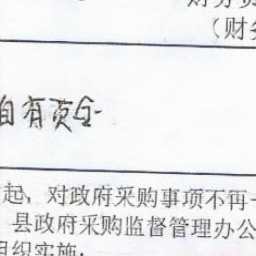 （财务
自有资金
起，对政府采购事项不再
县政府采购监督管理办公
组织实施；